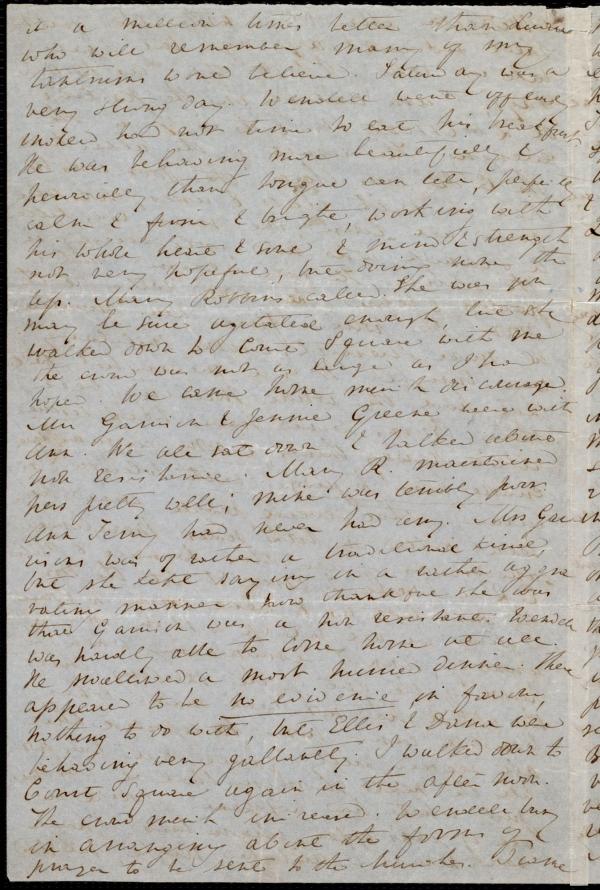 it a million times better than
who will remember many of my
tantrums wond believe. Saturday was a
very stirring day. Wendell went off early
indeed had not time to eat his breakfast
He was behaving more beautifully &
heroically than tongue can tell, perfectly
calm & firm & bright, working with
his whole heart & soul & mind & strength
not very hopeful, but doing none the
less. Mary Robbins called. She was you
may be sure agitated enough, but she
walked down to Court Square with me
the crowd was not as large as I had
hoped. We came home much discouraged.
Mrs Garrison & Jennie Greene were with
Ann. We all sat down & talked about
non resistance. Mary R. maintained
hers pretty well; mine was terribly
Ann Terry had never had any. Mrs Gar
risons was of rather a traditional kind,
but she kept saying in a rather aggra
vating manner how thankful she was
that Garrison was a non resistant. Wendell
was hardly able to come home at all.
He swallowed a most hurried dinner. There
appeared to be no evidence in favour,
nothing to do with, but Ellis & Dana were
behaving very gallantly. I walked down to
Court Square again in the after noon.
The crowd much increased. Wendell busy
in arranging about the forms of
prayer to be sent to the churches.